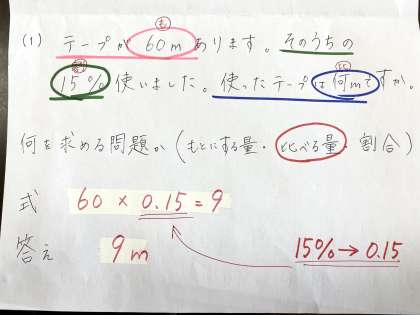 (1) テープが 60m あります。そのうちの
15% 使いました。使ったテープは何mですか。
何を求める問題か(もとにする量・比べる量・割合)
式 60 × 0.15 = 9
答え 9m
15%→0.15